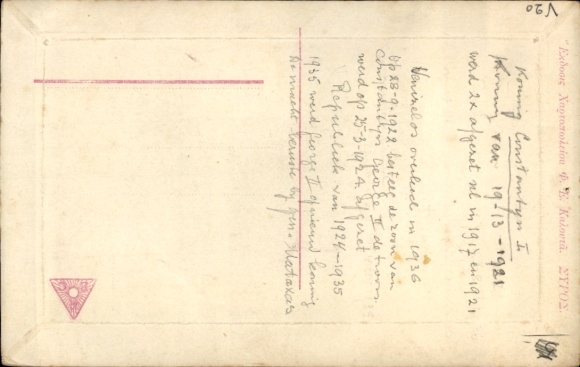 Εκδοσις Χαρτοπωλείου Φ. Ε. ΣΥΡΟΣ
V20
Koning Constantyn I
Koning van 19-13-1921
werd 2x afgezet nl in 1917 en 1921
Venizelos overleed in 1936
Op 28-9-1922 besteeg de zoon van
Constantyn George II de troon
werd op 25-3-1924 afgezet
Republiek van 1924-1935
1935 werd George II opnieuw koning
De macht berustte by gen. Mataxas